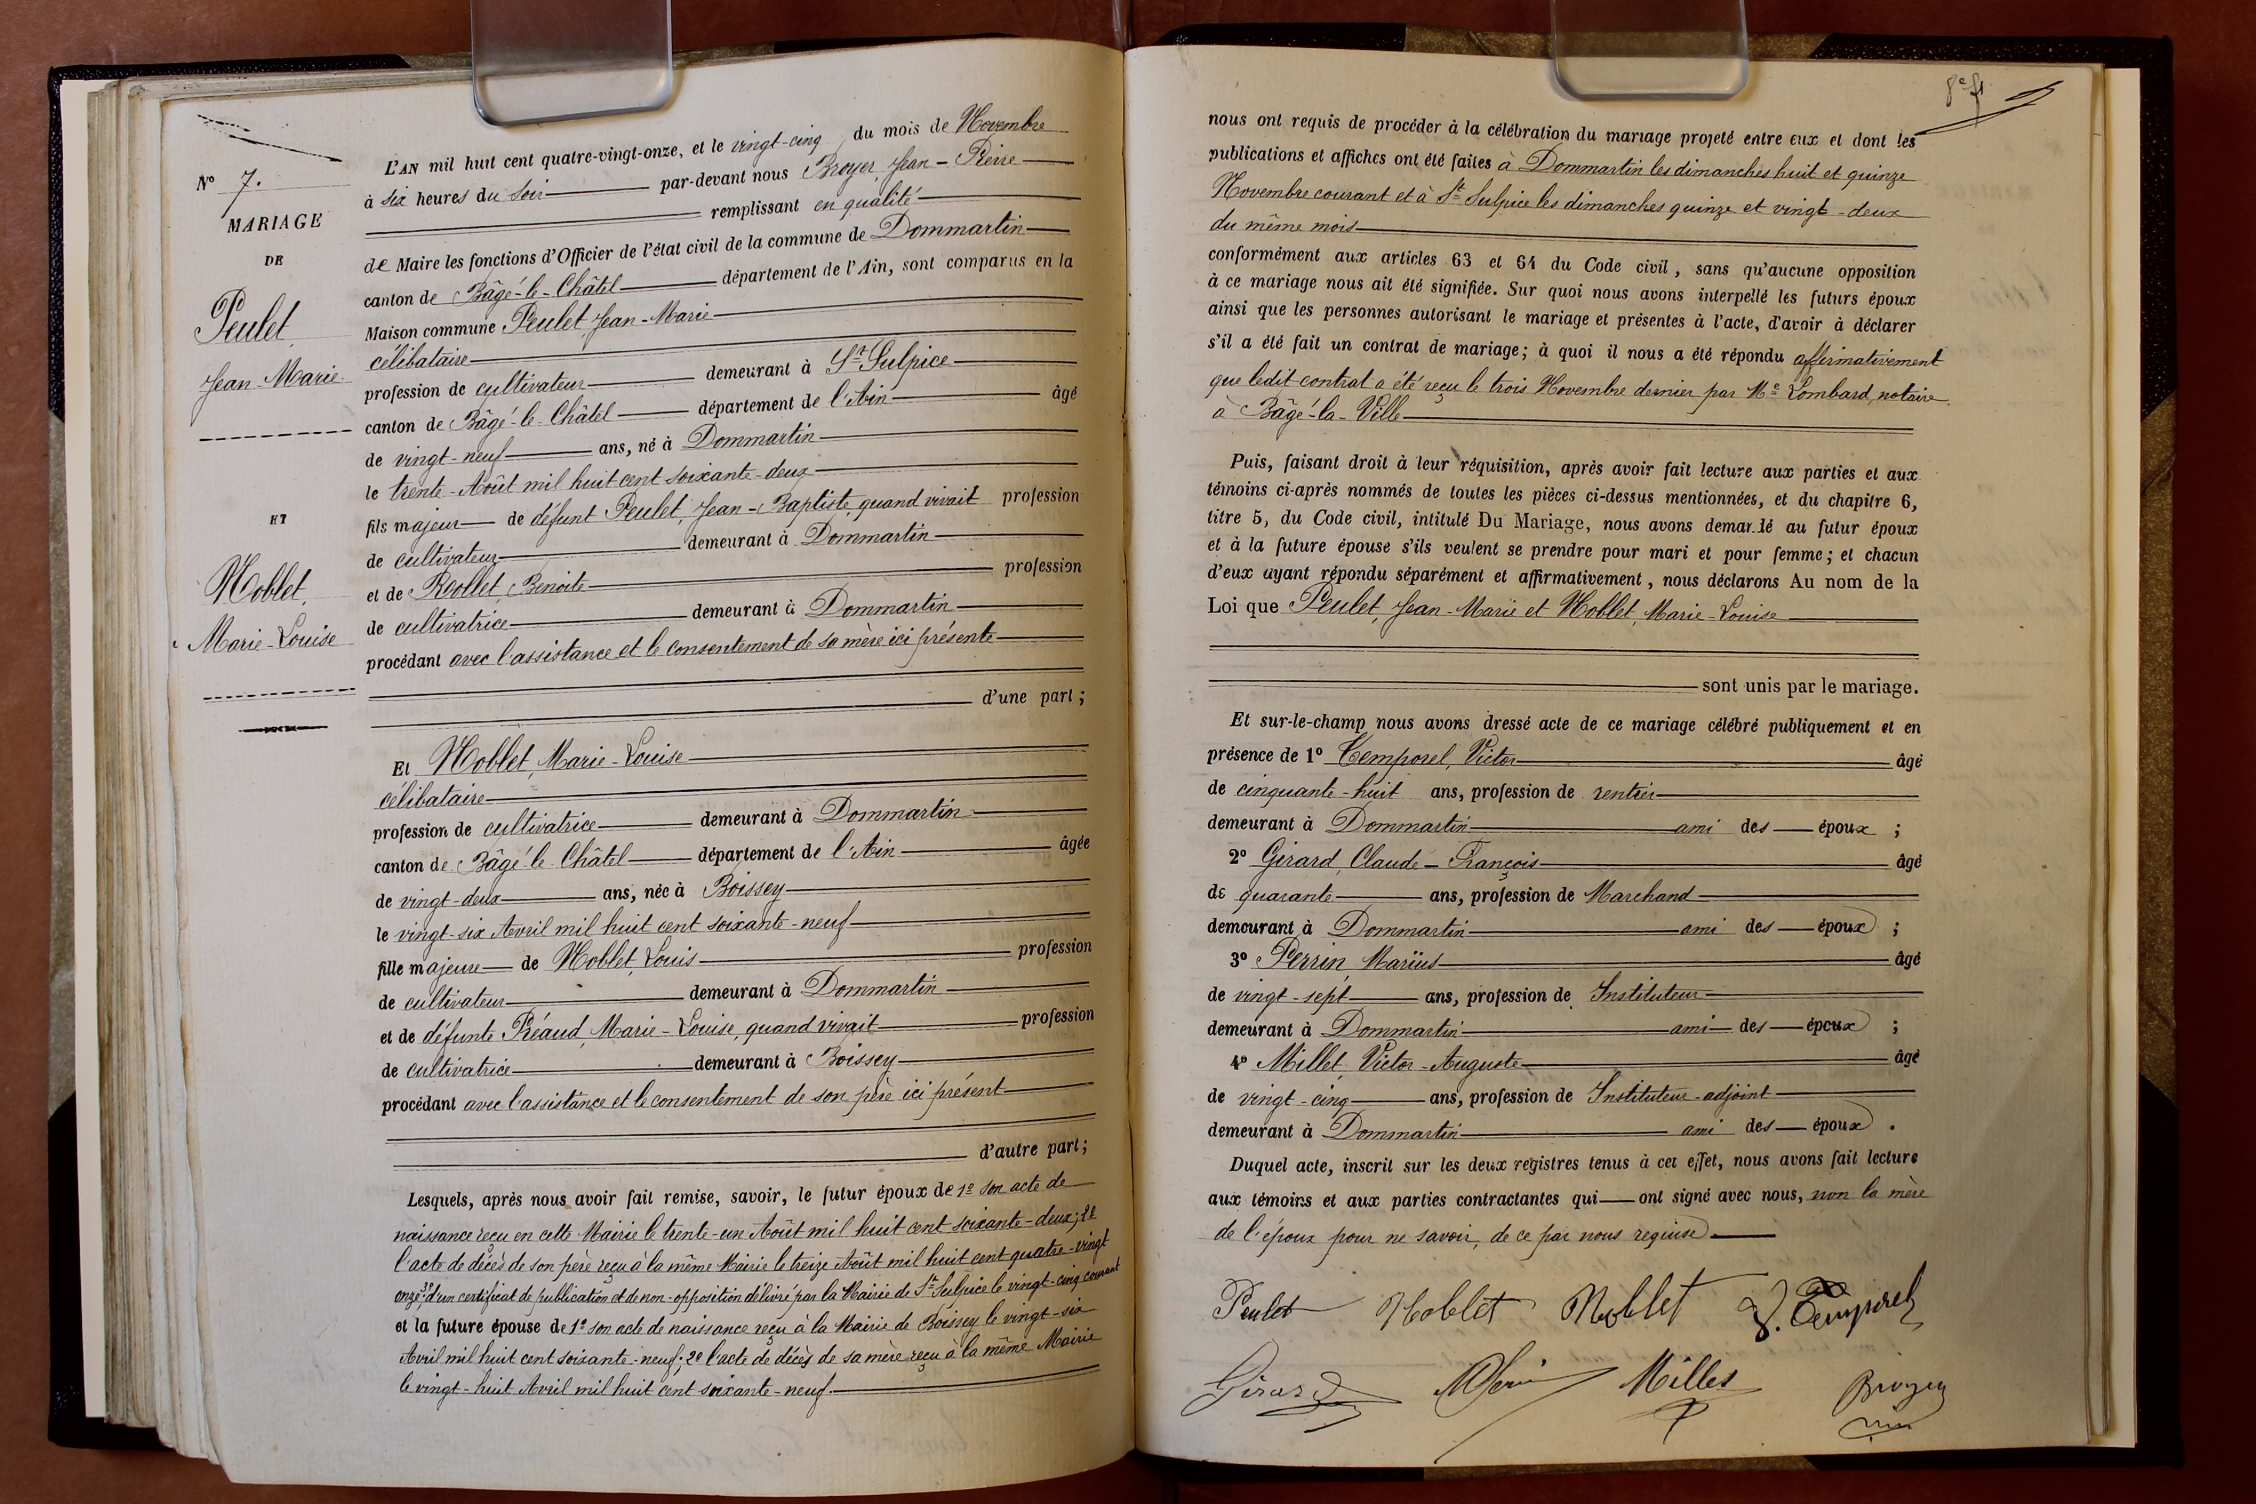 N° 7.
MARIAGE
DE
Peulet
Jean-Marie
ET
Noblet,
Marie-Louise
L'AN mil huit cent quatre-vingt-onze, et le vingt-cinq du mois de Novembre
à six heures du soir par-devant nous Broyer, Jean-Pierre
remplissant en qualité
de Maire les fonctions d'Officier de l'état civil de la commune de Dommartin
canton de Bâgé-le-Châtel département de l'Ain, sont comparus en la
Maison commune Peulet Jean-Marie
célibataire
profession de cultivateur demeurant à St Sulpice
canton de Bâgé-le-Châtel département de l'Ain âgé
de vingt-neuf ans, né à Dommartin
le trente-Août mil huit cent soixante-deux
fils majeur de défunt Peulet, Jean-Baptiste, quand vivait profession
de cultivateur demeurant à Dommartin
et de Reollet, Benoite profession
de cultivatrice demeurant à Dommartin
procédant avec l'assistance et le consentement de sa mère ici présente
d'une part ;
Et Noblet, Marie-Louise
célibataire
profession de cultivatrice demeurant à Dommartin
canton de Bâgé-le-Châtel département de l'Ain âgée
de vingt-deux ans, née à Boissey
le vingt-six Avril mil huit cent soixante-neuf
fille majeure de Noblet, Louis profession
de cultivateur demeurant à Dommartin
et de défunte Préaud, Marie-Louise, quand vivait profession
de cultivatrice demeurant à Boissey
procédant avec l'assistance et le consentement de son père ici présent
d'autre part ;
Lesquels, après nous avoir fait remise, savoir, le futur époux de 1° son acte de
naissance reçu en cette Mairie le trente-un Août mil huit cent soixante-deux; 2°
l'acte de décès de son père reçu à la même Mairie le treize Août mil huit cent quatre-vingt
onze; 3° d'un certificat de publication et de non-opposition délivré par la Mairie de St Sulpice le vingt-cinq courant
et la future épouse de 1° son acte de naissance reçu à la Mairie de Boissey le vingt-six
Avril mil huit cent soixante-neuf; 2° l'acte de décès de sa mère reçu à la même Mairie
le vingt-huit Avril mil huit cent soixante-neuf.
nous ont requis de procéder à la célébration du mariage projeté entre eux et dont les
publications et affiches ont été faites à Dommartin les dimanches huit et quinze
Novembre courant et à St Sulpice les dimanches quinze et vingt-deux
du même mois
conformément aux articles 63 et 64 du Code civil, sans qu'aucune opposition
à ce mariage nous ait été signifiée. Sur quoi nous avons interpellé les futurs époux
ainsi que les personnes autorisant le mariage et présentes à l'acte, d'avoir à déclarer
s'il a été fait un contrat de mariage; à quoi il nous a été répondu affirmativement
que ledit contrat a été reçu le trois Novembre dernier par Me Lombard, notaire
à Bâgé-la-Ville
Puis, faisant droit à leur réquisition, après avoir fait lecture aux parties et aux
témoins ci-après nommés de toutes les pièces ci-dessus mentionnées, et du chapitre 6,
titre 5, du Code civil, intitulé Du Mariage, nous avons demandé au futur époux
et à la future épouse s'ils veulent se prendre pour mari et pour femme ; et chacun
d'eux ayant répondu séparément et affirmativement, nous déclarons Au nom de la
Loi que Peulet, Jean-Marie et Noblet, Marie-Louise
sont unis par le mariage.
Et sur-le-champ nous avons dressé acte de ce mariage célébré publiquement et en
présence de 1° Temporel, Victor âgé
de cinquante-huit ans, profession de rentier
demeurant à Dommartin ami des époux ;
2° Girard, Claude-François âgé
de quarante ans, profession de Marchand
demeurant à Dommartin ami des époux ;
3° Perrin, Marius âgé
de vingt-sept ans, profession de Instituteur
demeurant à Dommartin ami des époux ;
4° Millet, Victor-Auguste âgé
de vingt-cinq ans, profession de Instituteur-adjoint
demeurant à Dommartin ami des époux.
Duquel acte, inscrit sur les deux registres tenus à cet effet, nous avons fait lecture
aux témoins et aux parties contractantes qui ont signé avec nous, non la mère
de l'époux pour ne savoir, de ce par nous requise
Peulet Noblet Noblet V. Temporel
Girard Millet Broyer